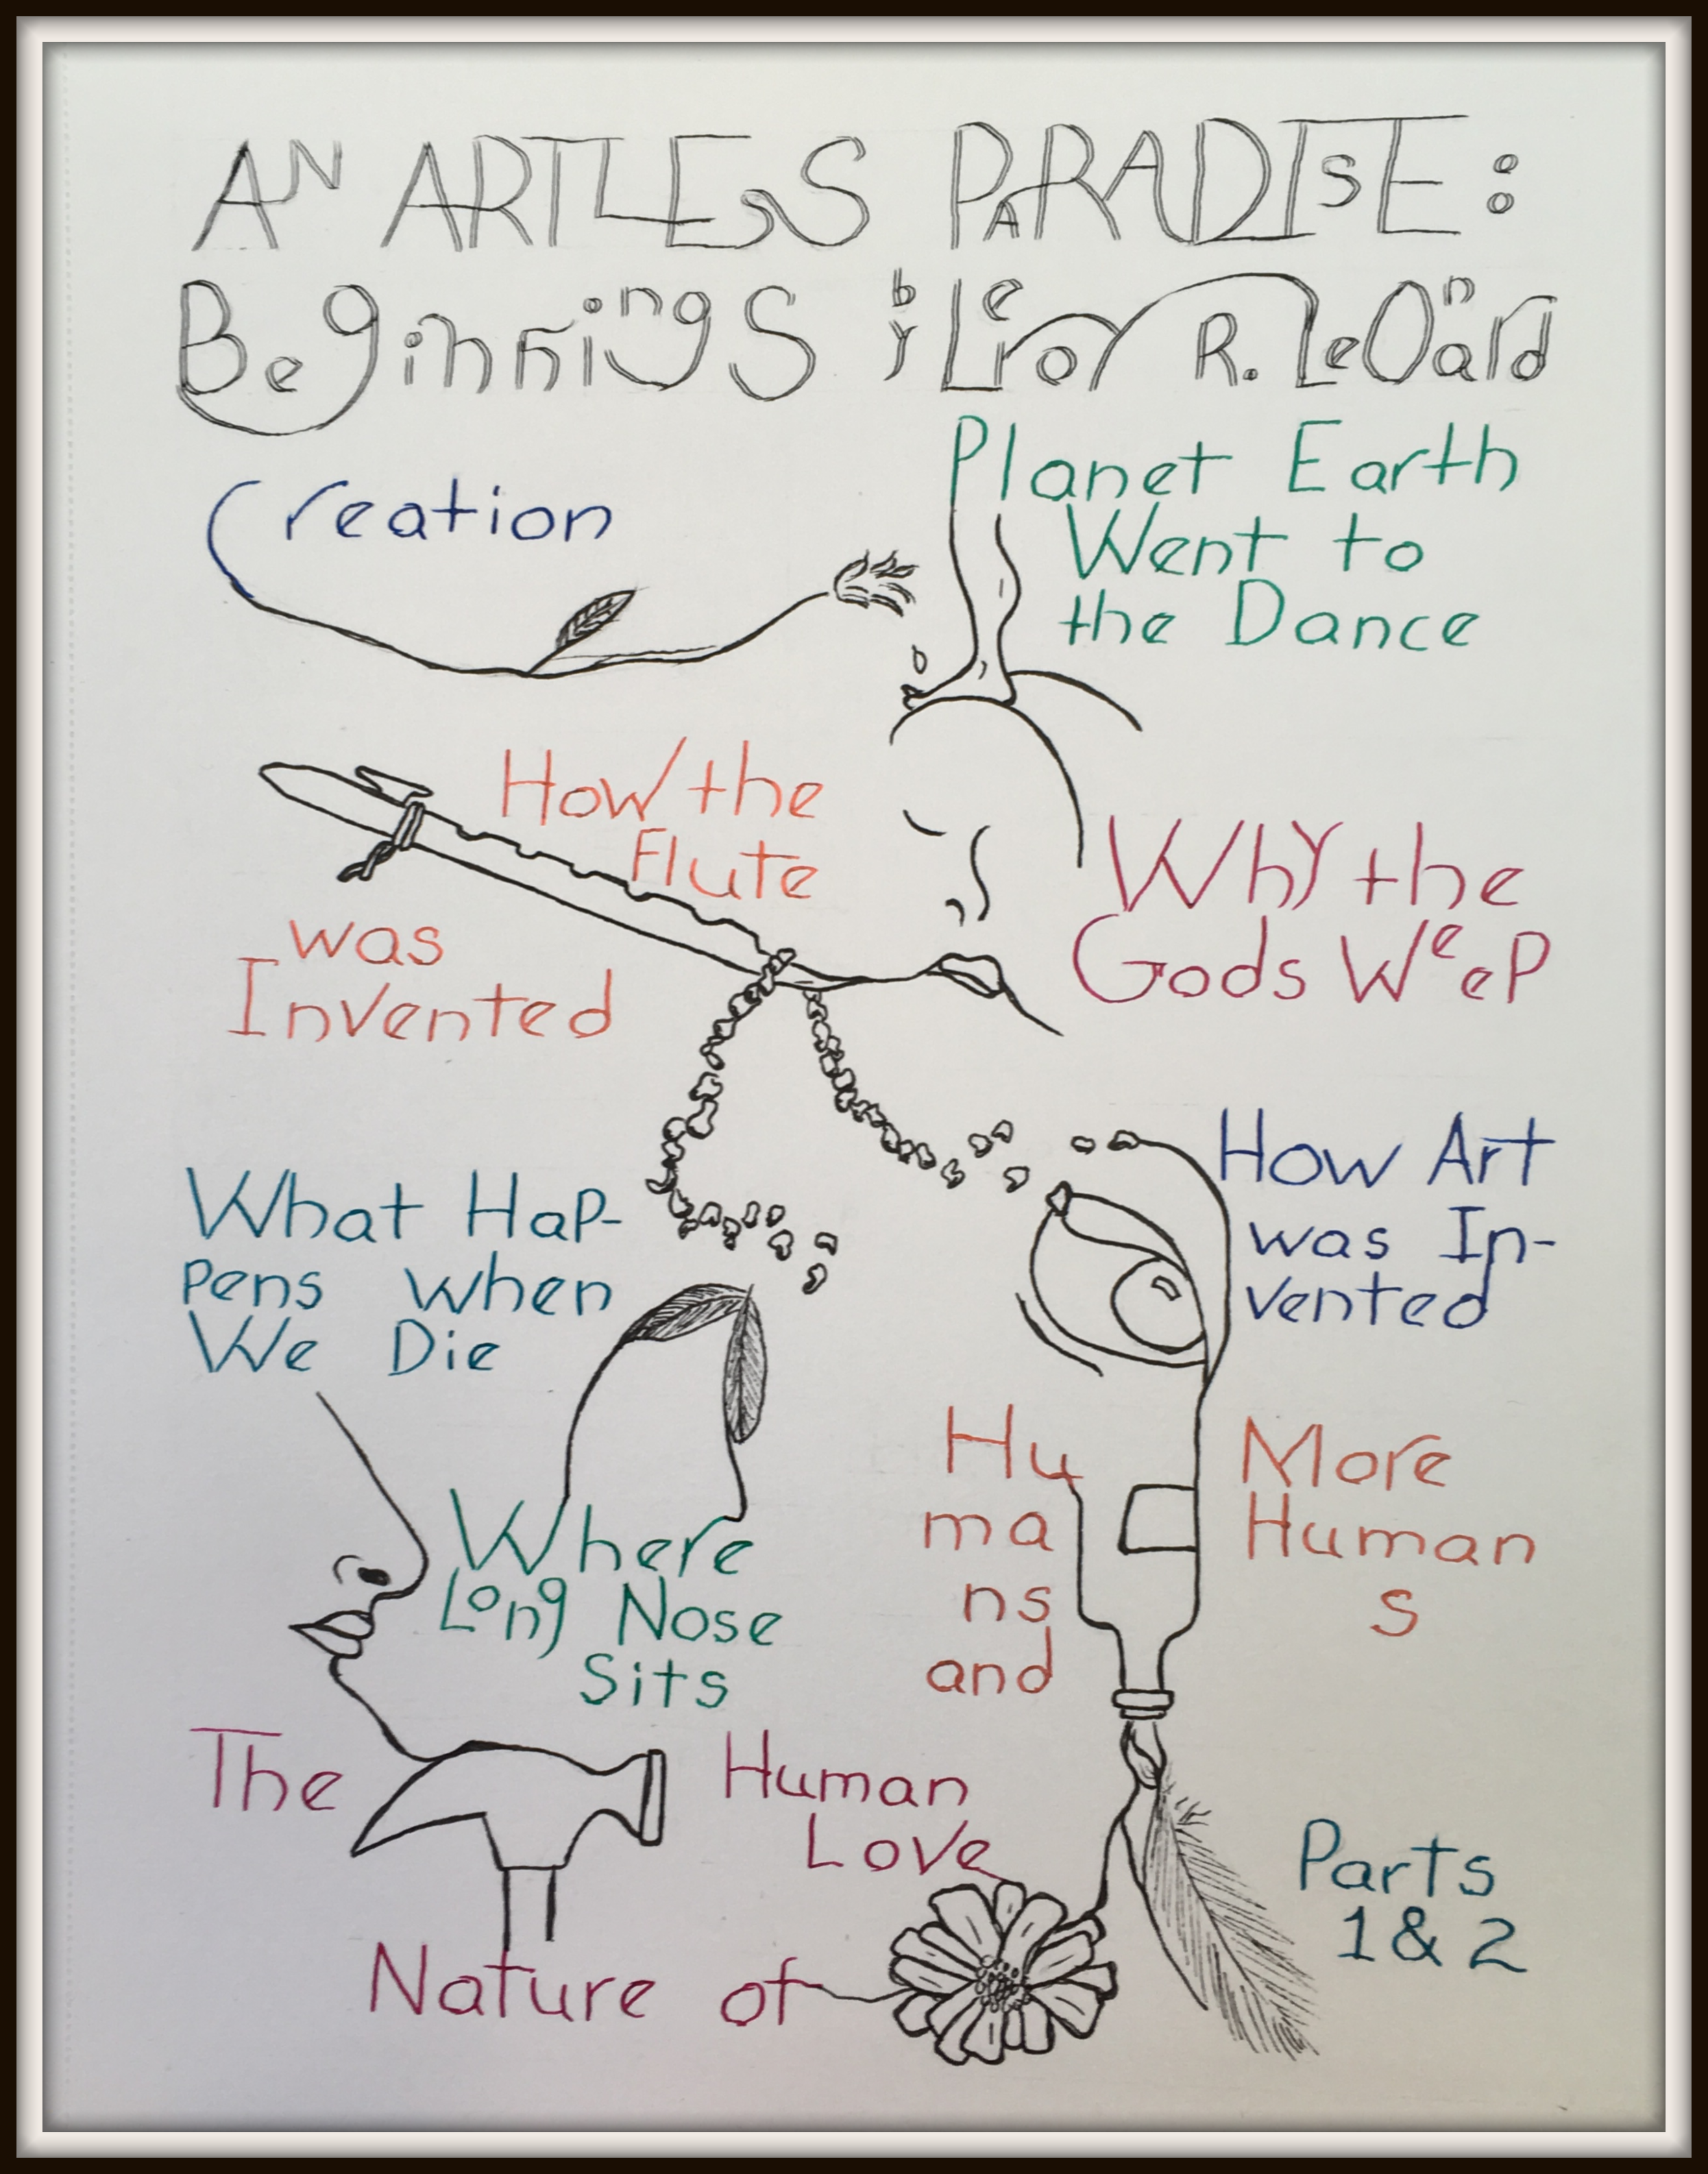 AN ARTLESS PARADISE:
BeginningS by Leroy R. LeOnard
Creation
Planet Earth
Went to
the Dance
How the
Flute
was
Invented
Why the
Gods WeeP
What Hap-
pens when
We Die
How Art
was In-
vented
Where
Long Nose
Sits
Hu
ma
ns
and
More
Human
s
The
Human
Love
Nature of
Parts
1 & 2